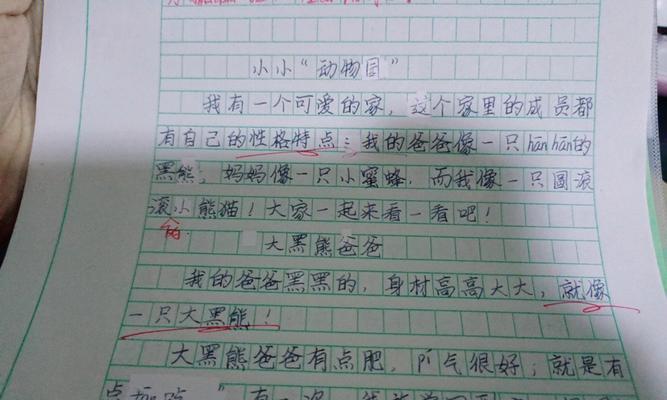 小小“动物园”
我有一个可爱的家,这个家里的成员都
有自己的性格特点:我的爸爸像一只hān hān的
黑熊;妈妈像一只小蜜蜂,而我像一只圆滚
滚小熊猫!大家一起来看一看吧!
的
大黑熊爸爸
我的爸爸黑黑的,身材高高大大,就像
一只大黑熊!
大黑熊爸爸有点肥,气很好;就是有
有一次